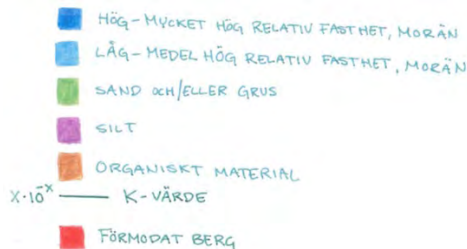 HÖG-MYCKET HÖG RELATIV FASTHET, MORÄN
LÅG-MEDEL HÖG RELATIV FASTHET, MORÄN
SAND OCH/ELLER GRUS
SILT
ORGANISKT MATERIAL
X·10⁻ˣ — K-VÄRDE
FÖRMODAT BERG